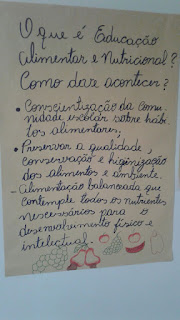 O que é Educação
Alimentar e Nutricional?
Como daze acontecer?
• Conscientização da comu
nidade escolar sobre hábi
tos alimentares;
• Preservar a qualidade,
conservação e higinização
dos alimentos e ambiente.
- Alimentação balanceada que
contemple todos os nutrientes
nescessários para o
desenvolvimento físico e
intelectual.